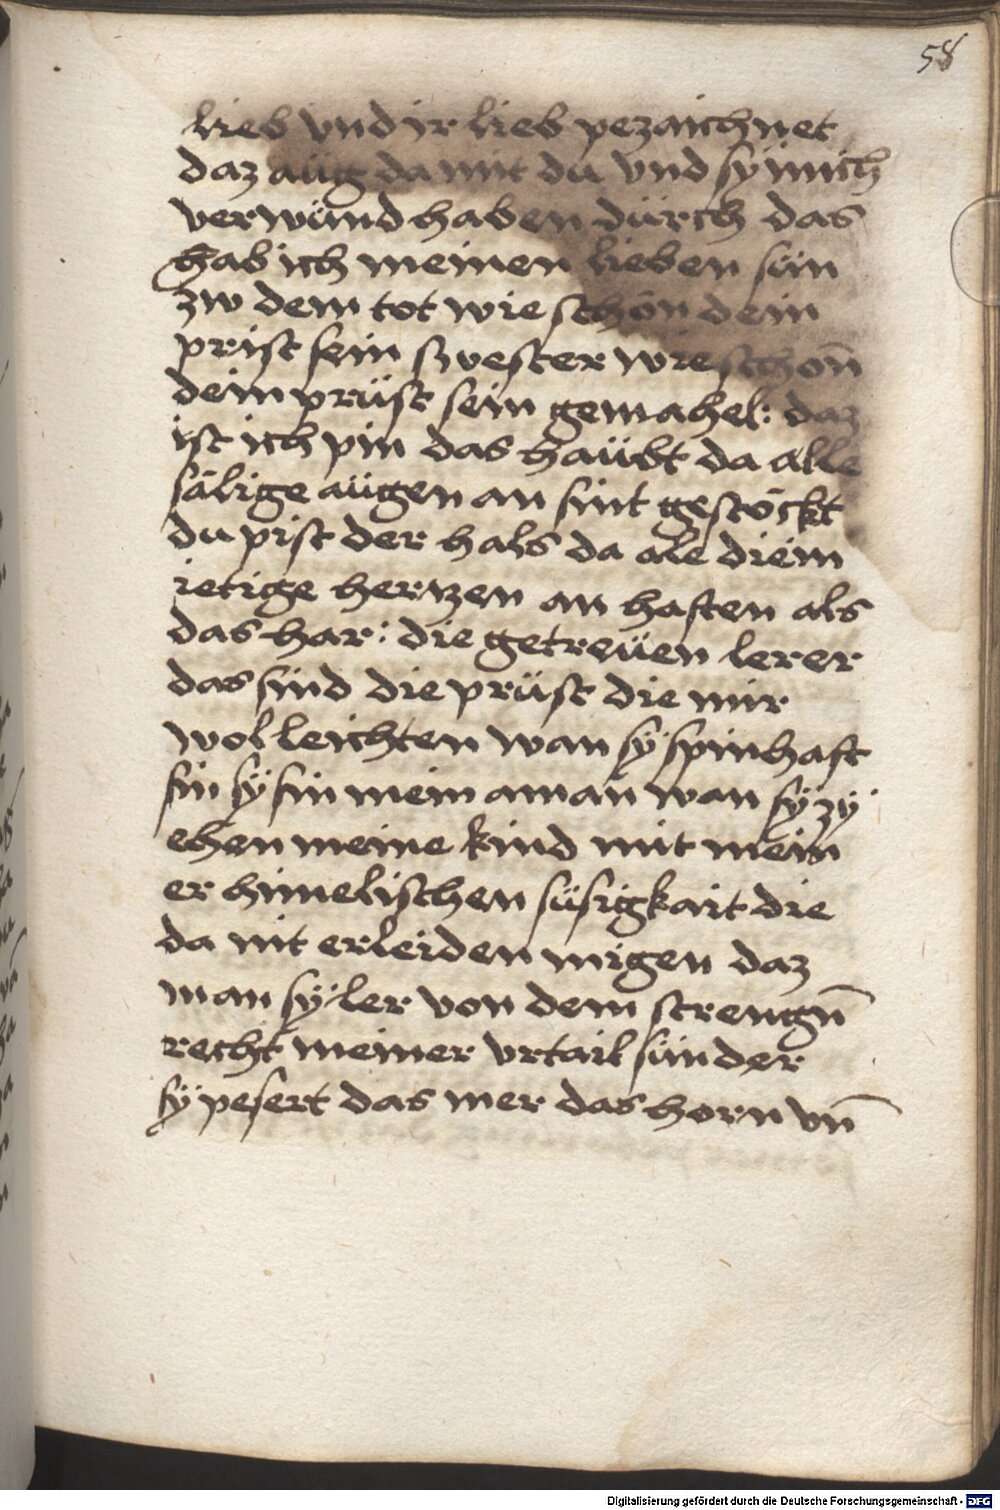 58
lieb vnd ir lieb pezaichnet
daz aüg da mit du vnd sÿ mich
verwünd haben dürch das
hab ich meinen lieben sün
zw dem tot wie schön dein
prist sein swester wie schön̄
dein prüst sein gemahel: daz
ist ich pin das haübt da alle
sälige aügen an sint gestöckt
du pist der hals da ale diem
ietige hertzen an haften als
das har: die getreüen lerer
das sind die prüst die mir
wol leichten wan sÿ spinhaft
sin sÿ sin mein aman wan sÿ zÿ
ehen meine kind mit mein
er himelischen süsigkait die
da nit erleiden migen daz
man sÿ ler von dem strengn̄
recht meiner vrtail sünder
sÿ pesert das mer das horn vn̄
Digitalisierung gefördert durch die Deutsche Forschungsgemeinschaft - DFG